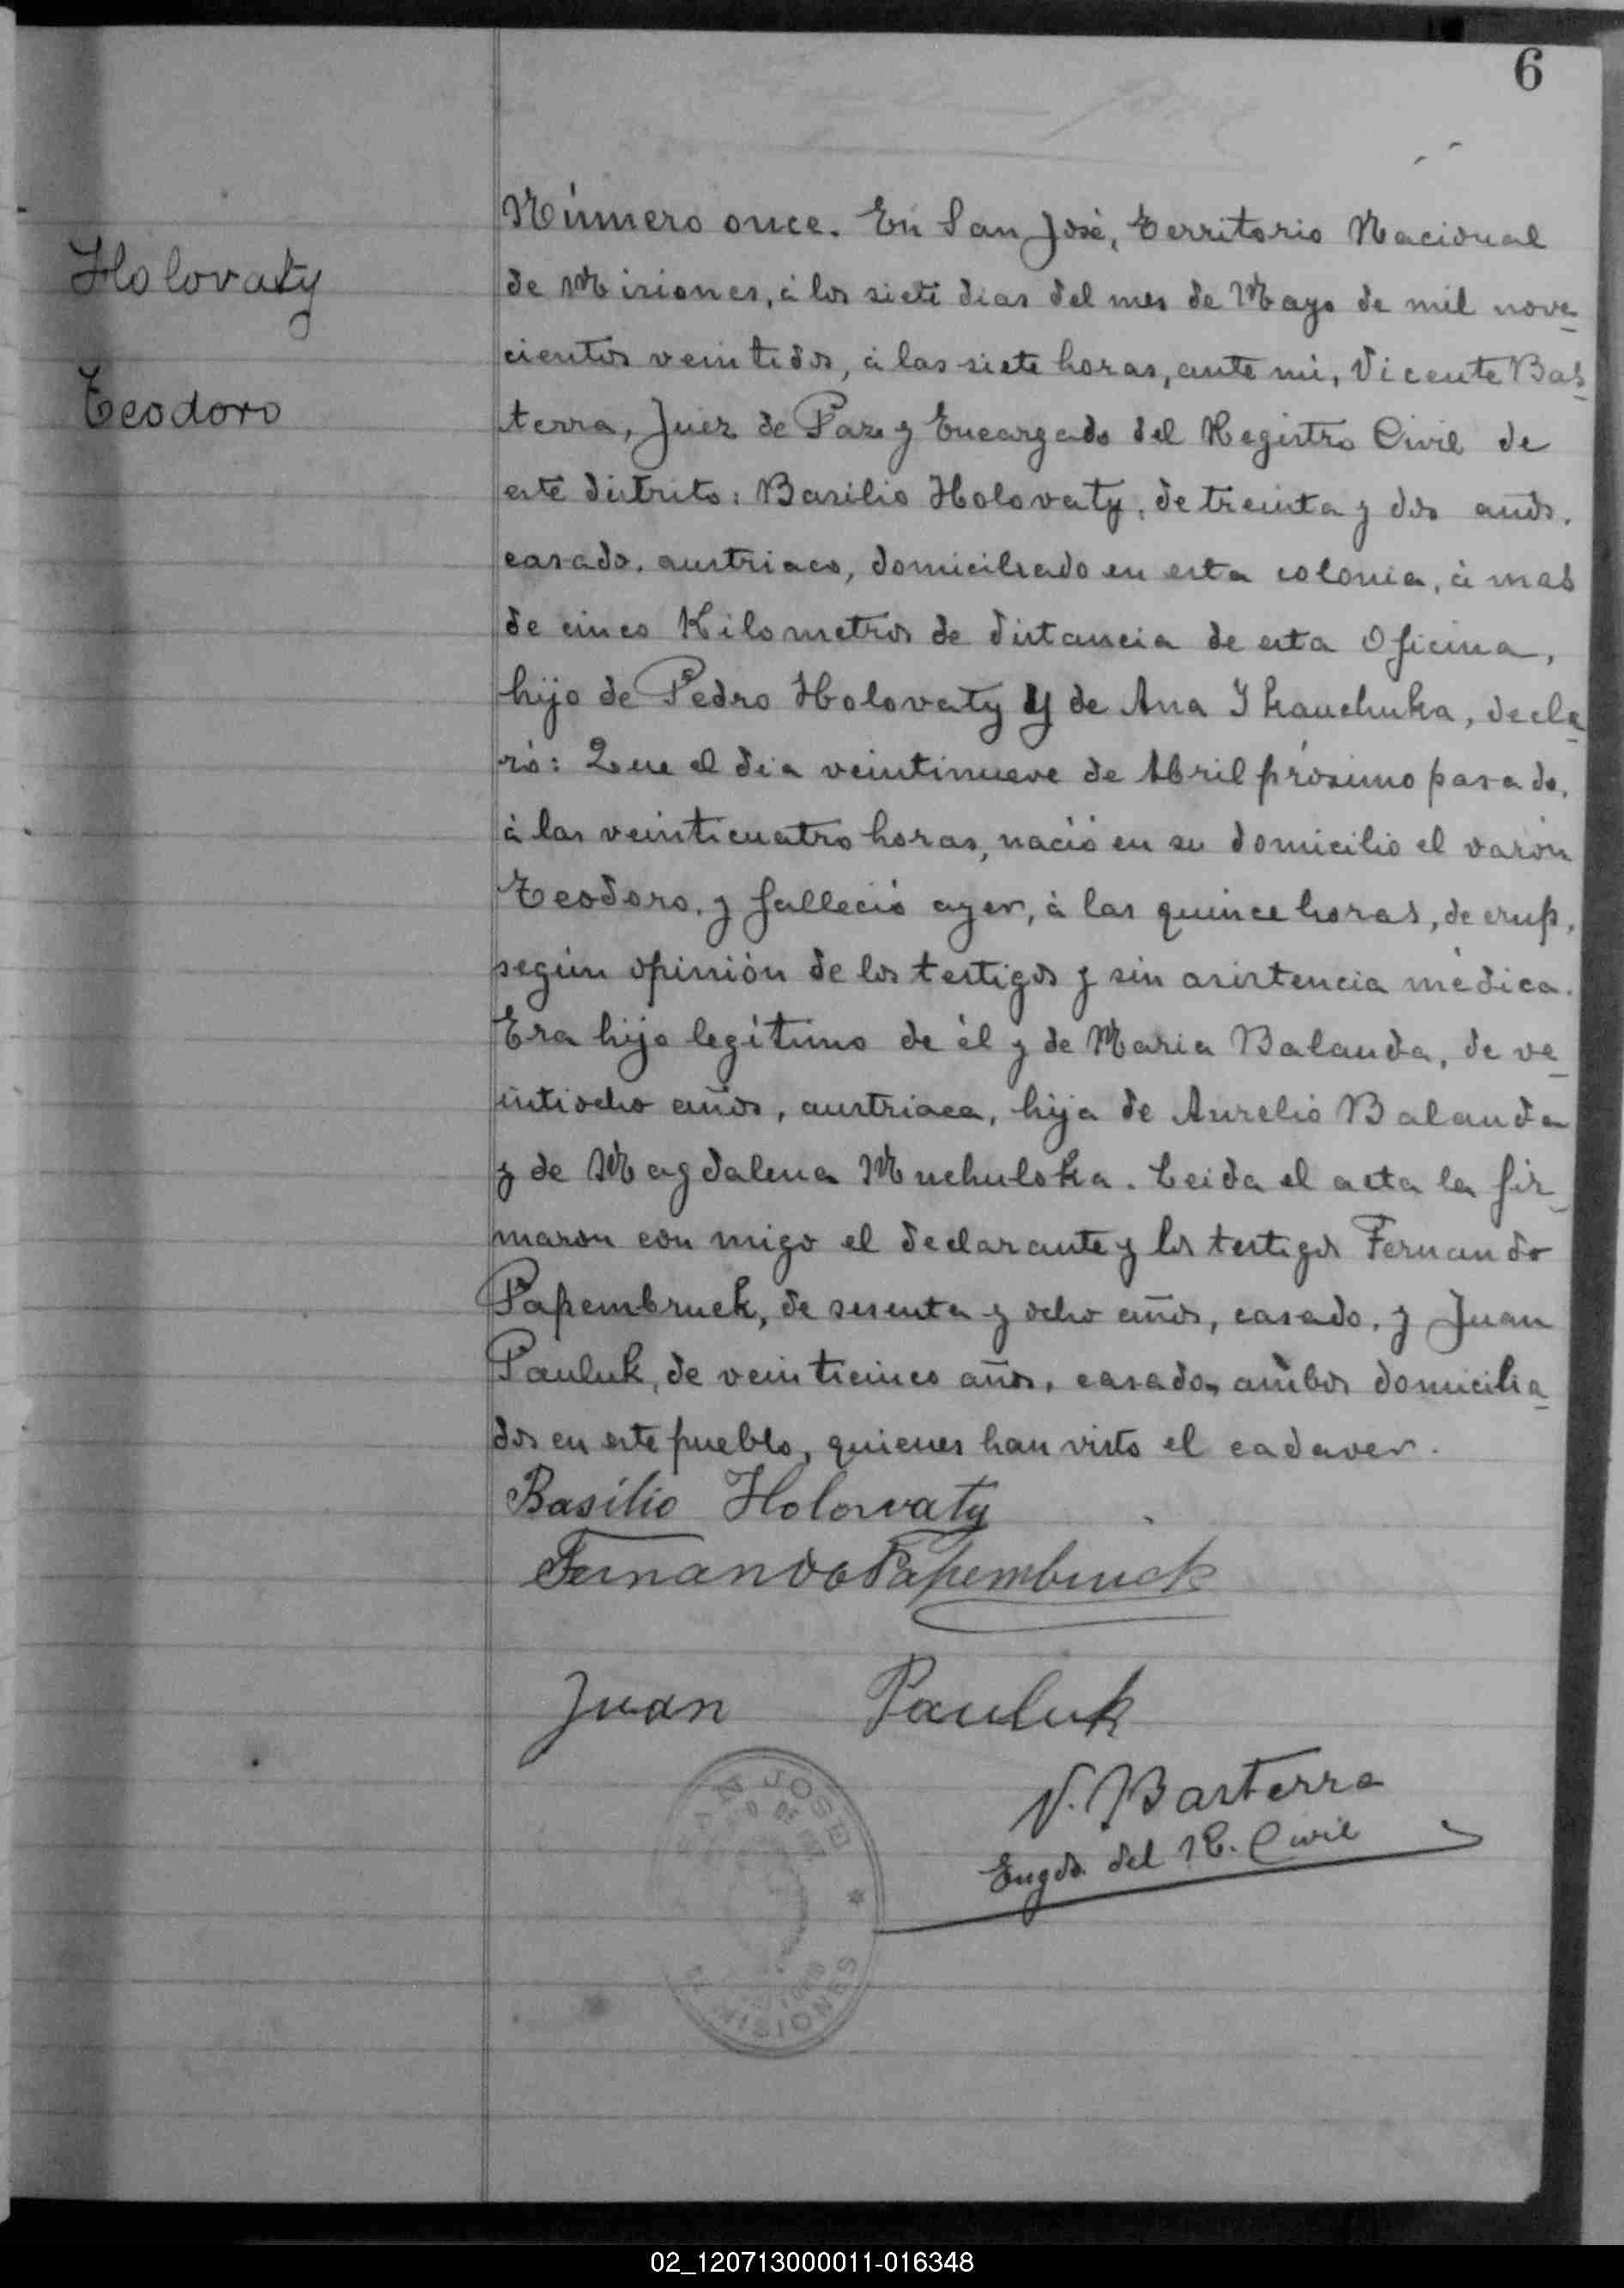 6
Holovaty
Teodoro
Número once. En San José, Territorio Nacional
de Misiones, á los siete dias del mes de Mayo de mil nove-
cientos veintidos, á las siete horas, ante mi, Vicente Bas-
terra, Juez de Paz y Encargado del Registro Civil de
este distrito: Basilio Holovaty, de treinta y dos años,
casado, austriaco, domiciliado en esta colonia, á mas
de cinco Kilometros de distancia de esta Oficina,
hijo de Pedro Holovaty y de Ana Ikauchuka, decla-
ró: Que el dia veintinueve de Abril próximo pasado,
á las veinticuatro horas, nació en su domicilio el varón
Teodoro, y falleció ayer, á las quince horas, de crup,
según opinión de los testigos y sin asistencia médica.
Era hijo legítimo de él y de Maria Balanda, de ve-
intiocho años, austriaca, hija de Aurelio Balanda
y de Magdalena Muchulska. Leida el acta la fir-
maron con migo el declarante y los testigos Fernando
Papembruck, de sesenta y ocho años, casado, y Juan
Pauluk, de veinticinco años, casado, ambos domicilia-
dos en este pueblo, quienes han visto el cadaver.
Basilio Holovaty
Fernando Papembruck
Juan Pauluk
V. Basterra
Engdo. del R. Civil
SAN JOSE
MISIONES
02_120713000011-016348